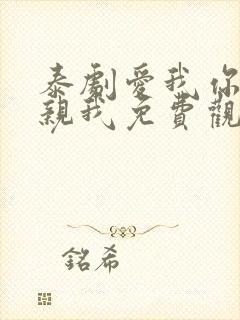 泰劇愛我你
親我免費觀
銘希